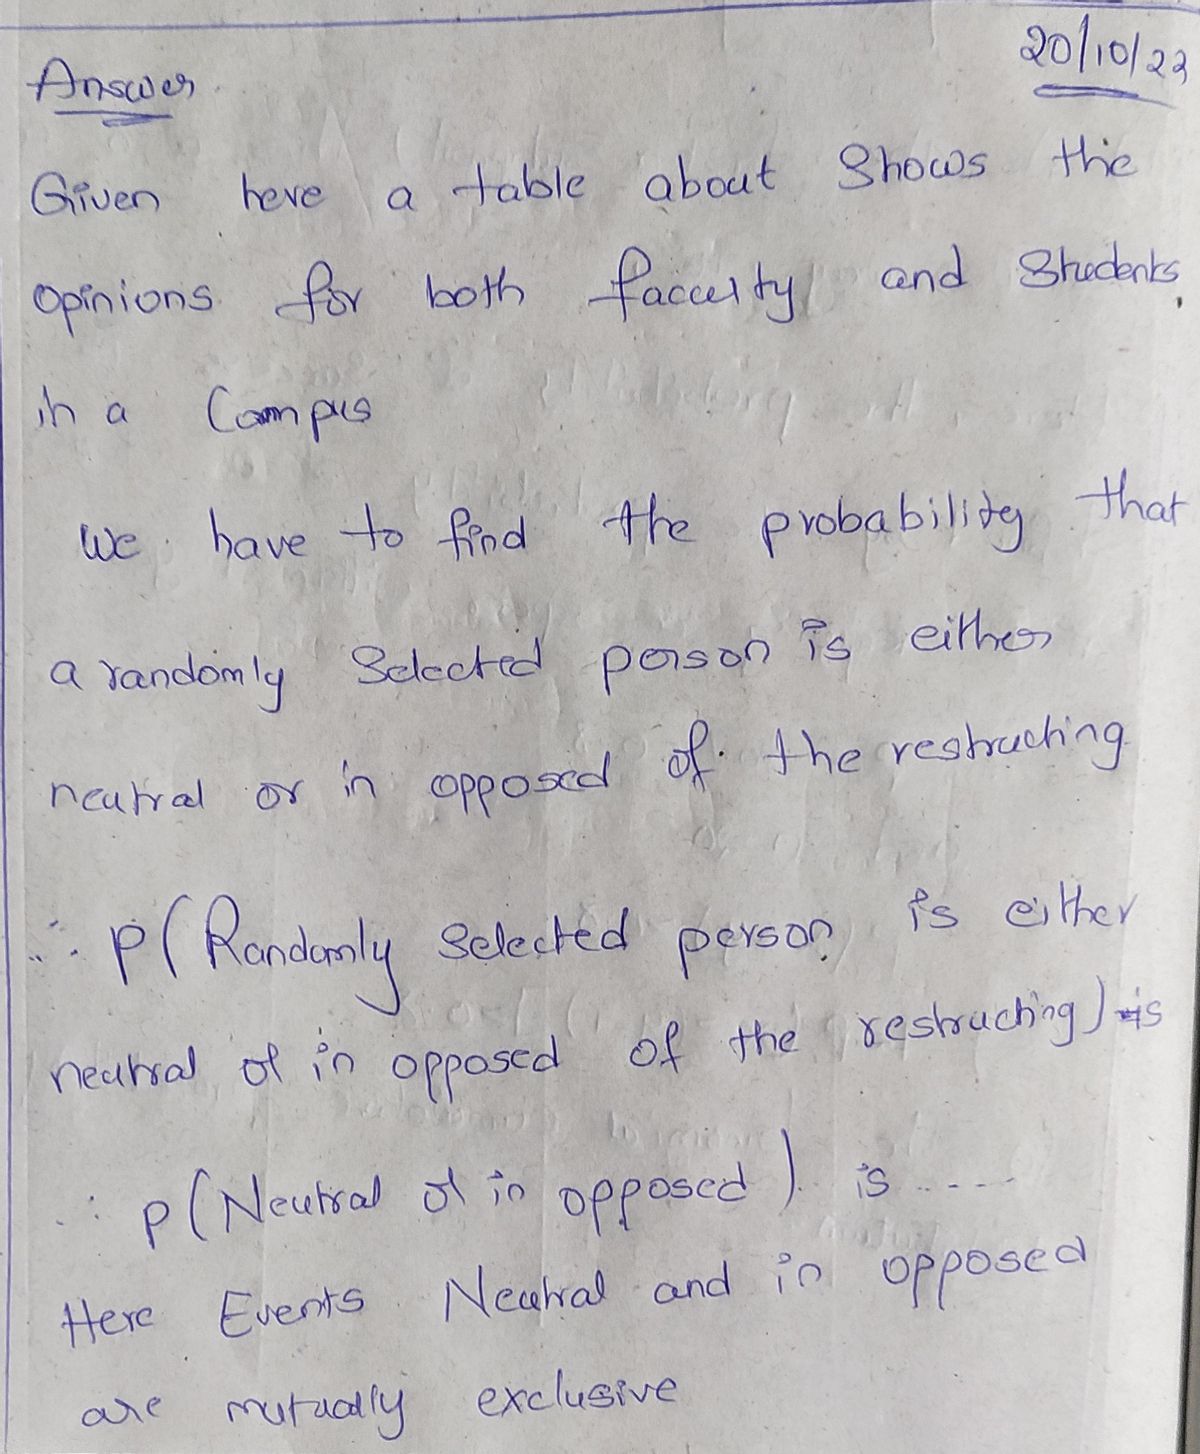 20/10/22
Answer
Given here a table about Shows the
opinions for both faculty and Students
in a Campus
We have to find the probability that
a randomly Selected person is either
neutral or in opposed of the restructing
∴ P(Randomly Selected person is either
neutral or in opposed of the restructing) is
∴ P(Neutral or in opposed) is ....
Here Events Neutral and in opposed
are mutually exclusive